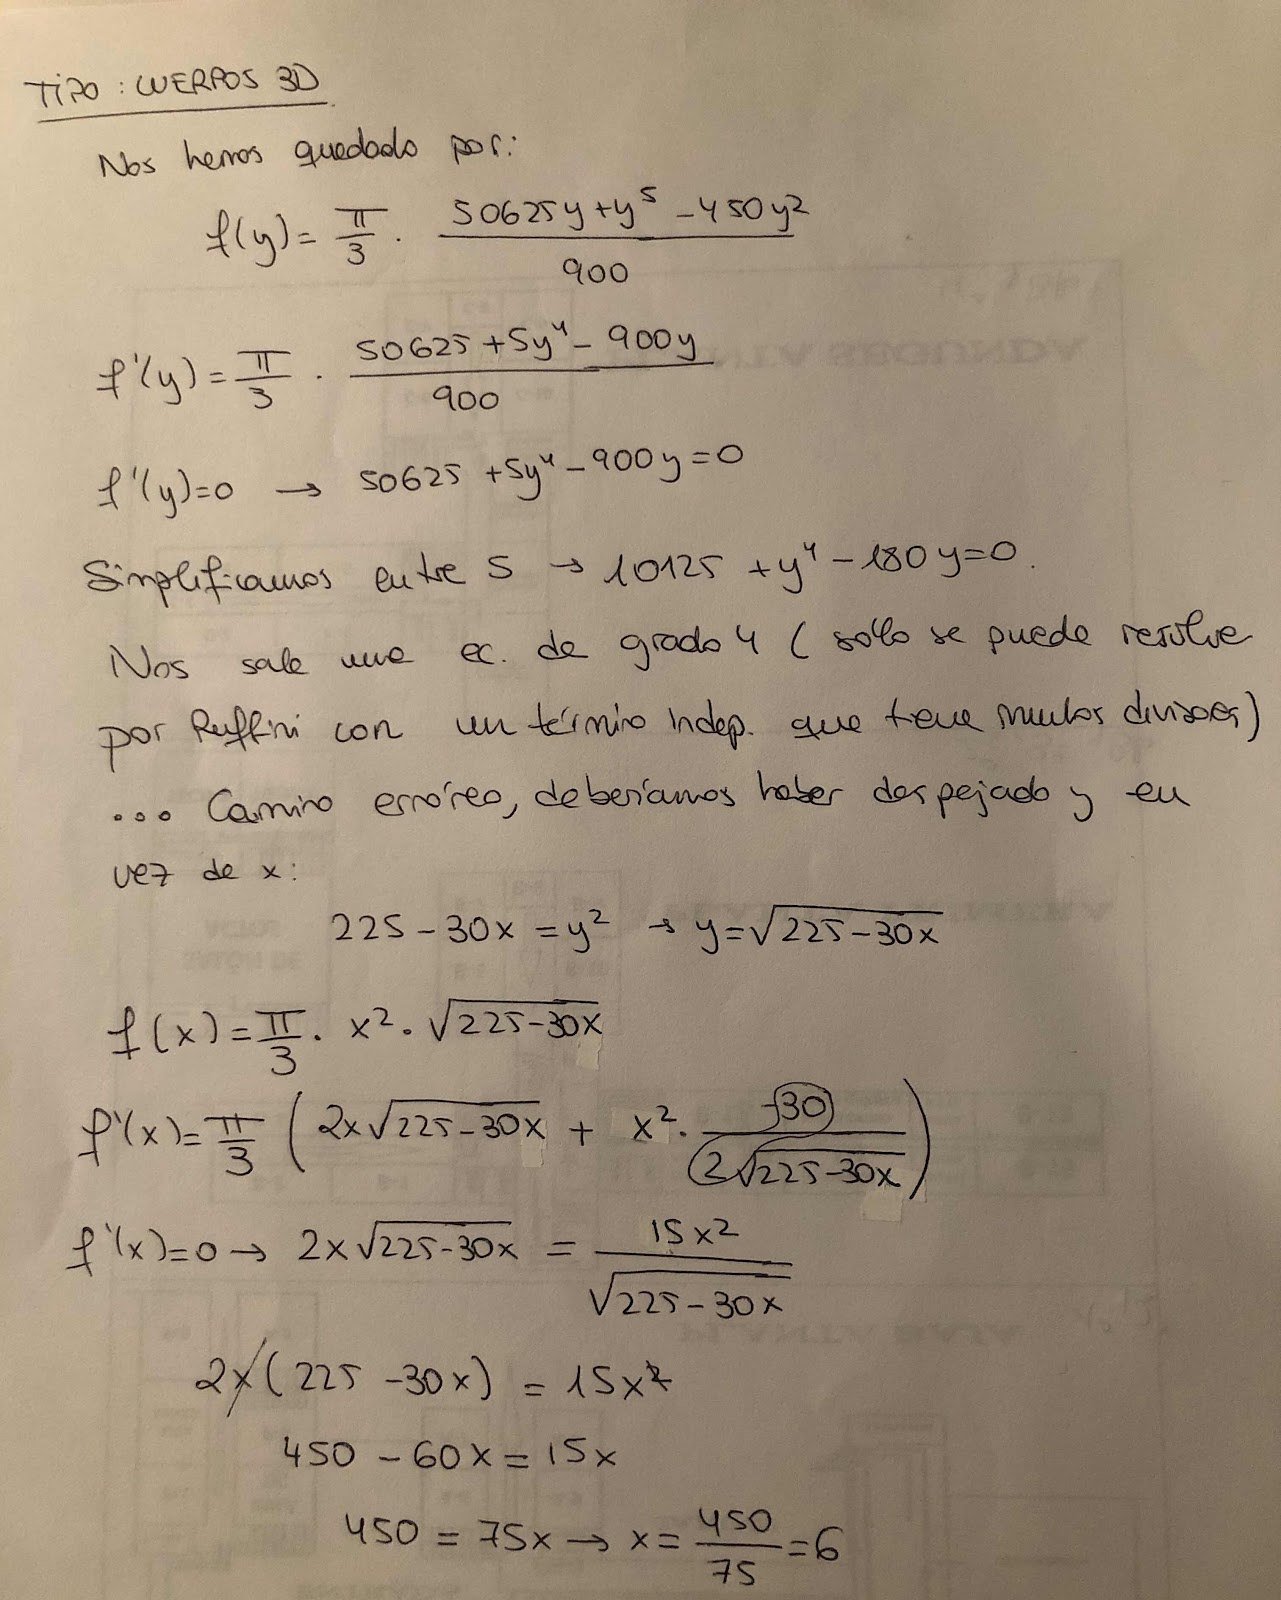 TIPO: CUERPOS 3D
Nos hemos quedado por:
f(y) = π/3 · (50625y + y⁵ - 450y²)/900
f'(y) = π/3 · (50625 + 5y⁴ - 900y)/900
f'(y)=0 → 50625 + 5y⁴ - 900y = 0
Simplificamos entre 5 → 10125 + y⁴ - 180y = 0.
Nos sale una ec. de grado 4 (sólo se puede resolve
por Ruffini con un término indep. que tiene muchos divisores)
... Camino erróneo, deberíamos haber despejado y en
vez de x:
225 - 30x = y² → y = √(225-30x)
f(x) = π/3 · x² · √(225-30x)
f'(x) = π/3 (2x√(225-30x) + x² · -30/(2√(225-30x)))
f'(x)=0 → 2x√(225-30x) = 15x²/√(225-30x)
2x(225 - 30x) = 15x²
450 - 60x = 15x
450 = 75x → x = 450/75 = 6